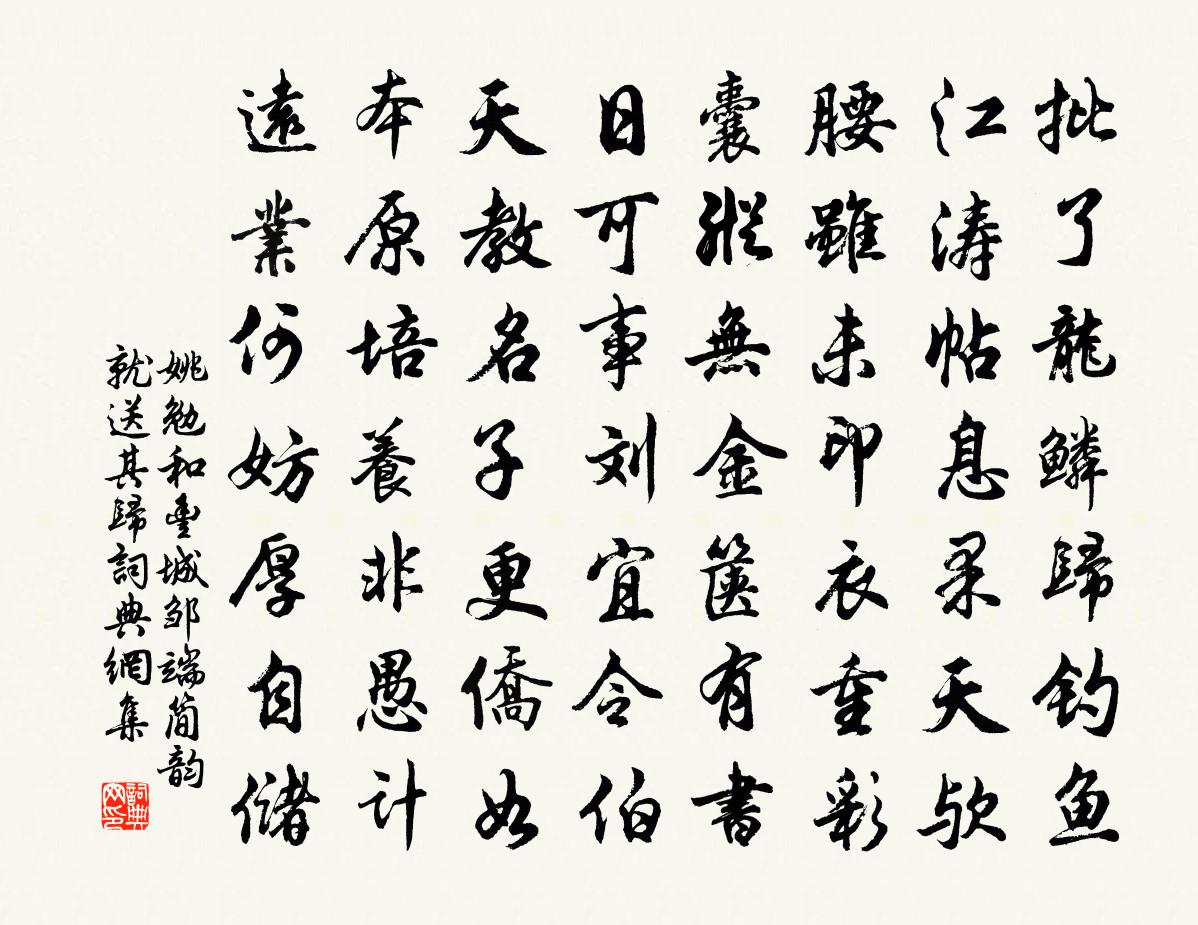 批了龍鱗歸釣魚
江濤帖息柔天歟
腰雖未印衣重彩
囊縱無金篋有書
日可事刘宜令伯
天教名子更僑如
本原培養非愚計
遠業何妨厚自儲
姚勉和豊城邹端簡韵
就送其歸詞典網集
詞典网印